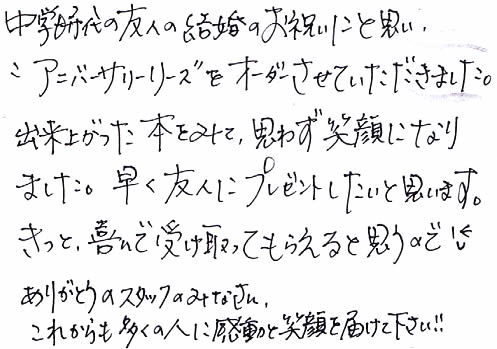 中学時代の友人の結婚のお祝いにと思い、
アニバーサリーリーズをオーダーさせていただきました。
出来上がった本をみて、思わず笑顔になり
ました。早く友人にプレゼントしたいと思います。
きっと、喜んで受け取ってもらえると思うので!!
ありがとうのスタッフのみなさん、
これからも多くの人に感動と笑顔を届けて下さい!!